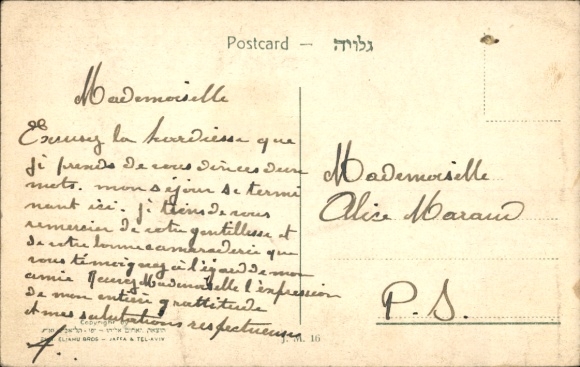 Postcard — גלויה
Mademoiselle
Excusez la hardiesse que
je prends de vous dire ces deux
mots. mon séjour se termi
nant ici. je tiens de vous
remercier de votre gentillesse et
de votre bonne camaraderie que
vous témoignez à l'égard de mon
amie Mademoiselle l'expression
de mon entière grattitude
et mes salutations respectueuses
Mademoiselle
Alice
P. S.
Copyright by
ELIAHU BROS — JAFFA & TEL-AVIV
J. M. 16